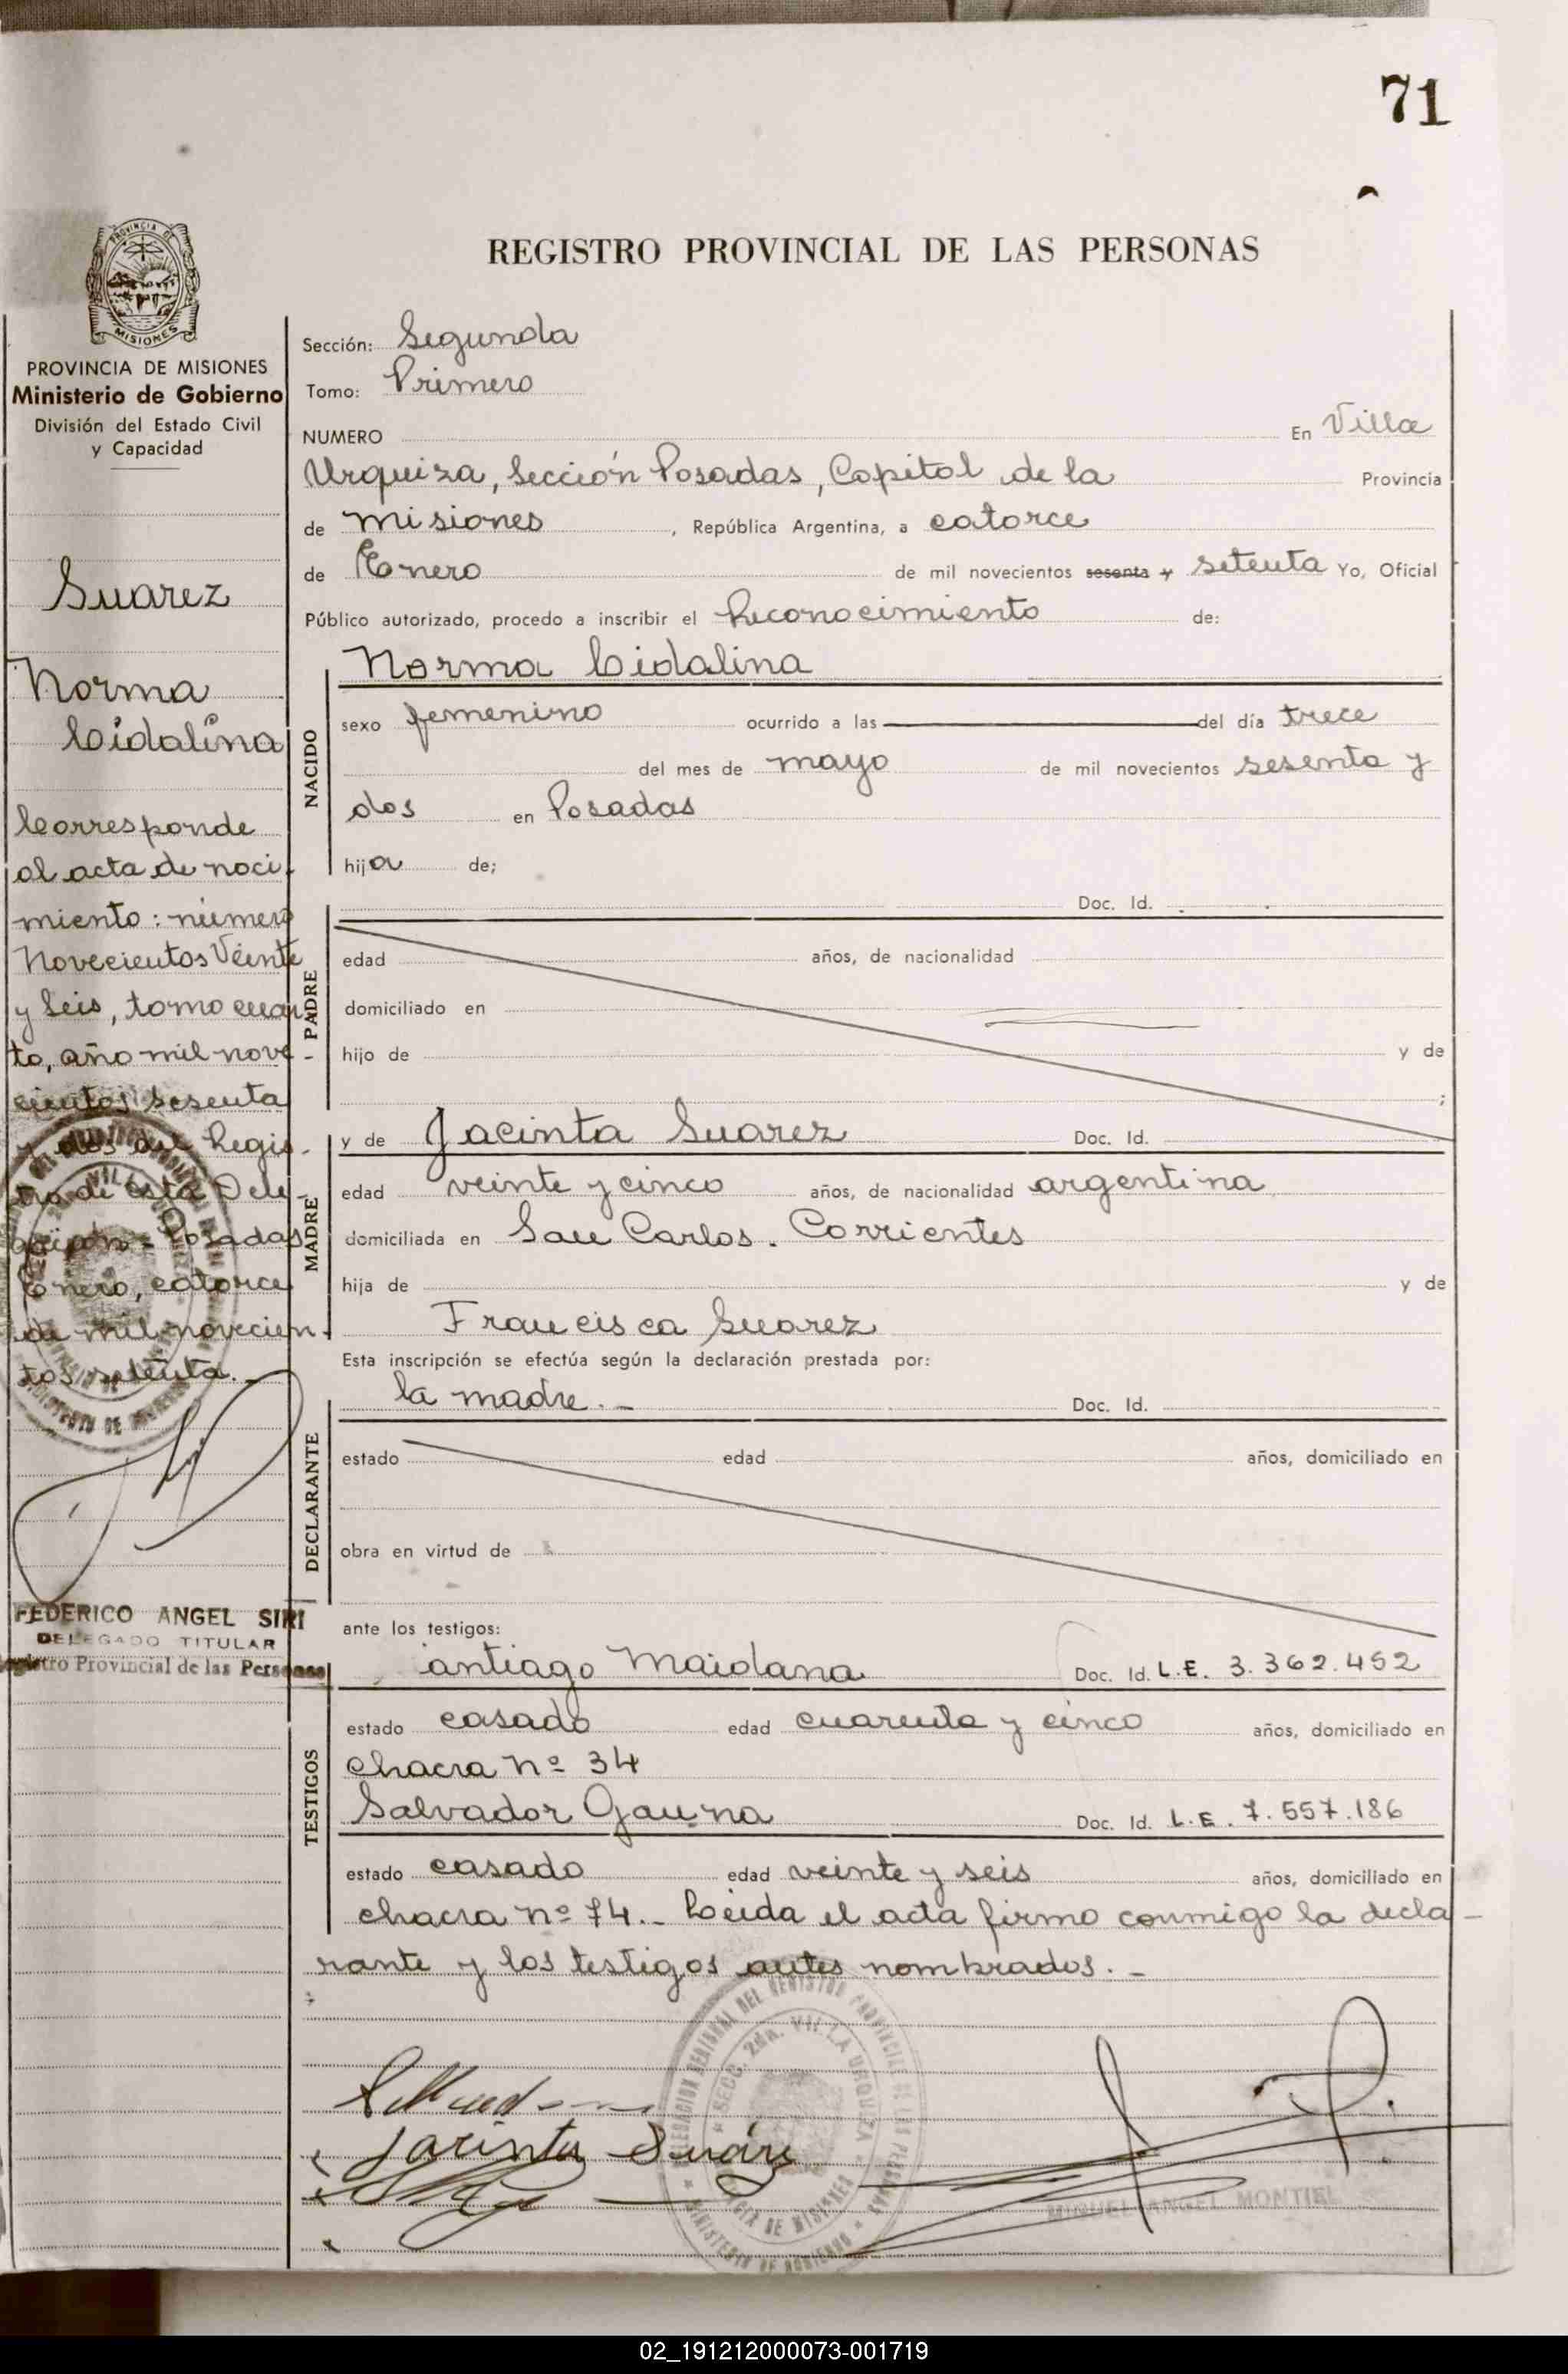 71
REGISTRO PROVINCIAL DE LAS PERSONAS
PROVINCIA DE
MISIONES
PROVINCIA DE MISIONES
Ministerio de Gobierno
División del Estado Civil
y Capacidad
Suarez
Norma
Cidalina
Corresponde
al acta de naci-
miento: número
Novecientos Veinte
y Seis, tomo cuar-
to, año mil nove-
cientos sesenta
y dos del Regis-
tro de esta Dele-
gación - Posadas
Enero, catorce
de mil novecien-
tos setenta.-
FEDERICO ANGEL SIRI
DELEGADO TITULAR
Registro Provincial de las Personas
Sección: Segunda
Tomo: Primero
NUMERO En Villa
Urquiza, Sección Posadas, Capital de la Provincia
de Misiones, República Argentina, a catorce
de Enero de mil novecientos sesenta y setenta Yo, Oficial
Público autorizado, procedo a inscribir el Reconocimiento de:
NACIDO
Norma Cidalina
sexo femenino ocurrido a las del día trece
del mes de mayo de mil novecientos sesenta y
dos en Posadas
hija de;
PADRE
Doc. Id.
edad años, de nacionalidad
domiciliado en
hijo de y de
;
MADRE
y de Jacinta Suarez Doc. Id.
edad veinte y cinco años, de nacionalidad argentina
domiciliada en San Carlos. Corrientes
hija de y de
Francisca Suarez
Esta inscripción se efectúa según la declaración prestada por:
DECLARANTE
la madre.- Doc. Id.
estado edad años, domiciliado en
obra en virtud de
ante los testigos:
TESTIGOS
antiago Maidana Doc. Id. L.E. 3.362.452
estado casado edad cuarenta y cinco años, domiciliado en
chacra nº 34
Salvador Gauna Doc. Id. L.E. 7.557.186
estado casado edad veinte y seis años, domiciliado en
chacra nº 74.- Leida el acta firmo conmigo la decla-
rante y los testigos antes nombrados.-
DELEGACION REGIONAL DEL REGISTRO PROVINCIAL DE LAS PERSONAS
SECC. 2da. VILLA URQUIZA
PROVINCIA DE MISIONES
MINISTERIO DE GOBIERNO
Jacinta Suáres
MIGUEL ANGEL MONTIEL
02_191212000073-001719